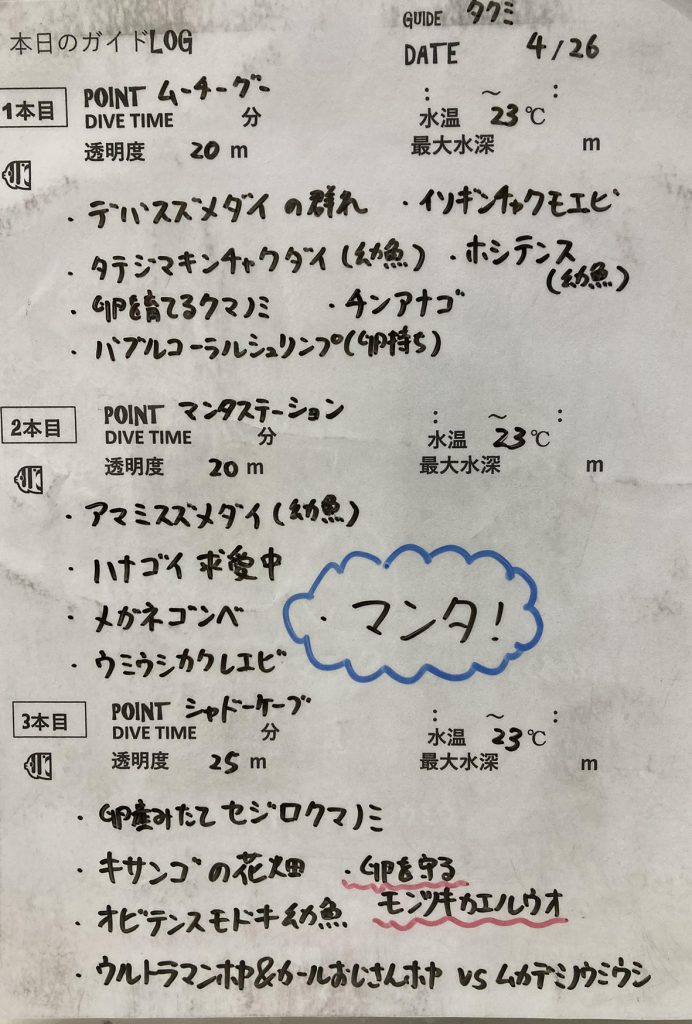 本日のガイドLOG
GUIDE タクミ
DATE 4/26
1本目 POINT ムーチーグー : ～ :
DIVE TIME 分 水温 23℃
透明度 20 m 最大水深 m
・デバスズメダイの群れ ・イソギンチャクモエビ
・タテジマキンチャクダイ(幼魚) ・ホシテンス
(幼魚)
・卵を育てるクマノミ ・チンアナゴ
・バブルコーラルシュリンプ(卵持ち)
2本目 POINT マンタステーション : ～ :
DIVE TIME 分 水温 23℃
透明度 20 m 最大水深 m
・アマミスズメダイ(幼魚)
・ハナゴイ 求愛中
・メガネゴンベ ・マンタ!
・ウミウシカクレエビ
3本目 POINT シャドーケーブ : ～ :
DIVE TIME 分 水温 23℃
透明度 25 m 最大水深 m
・卵産みたて セジロクマノミ
・キサンゴの花畑 ・卵を守る
モンツキカエルウオ
・オビテンスモドキ幼魚
・ウルトラマンホヤ&カールおじさんホヤ vs ムカデミノウミウシ